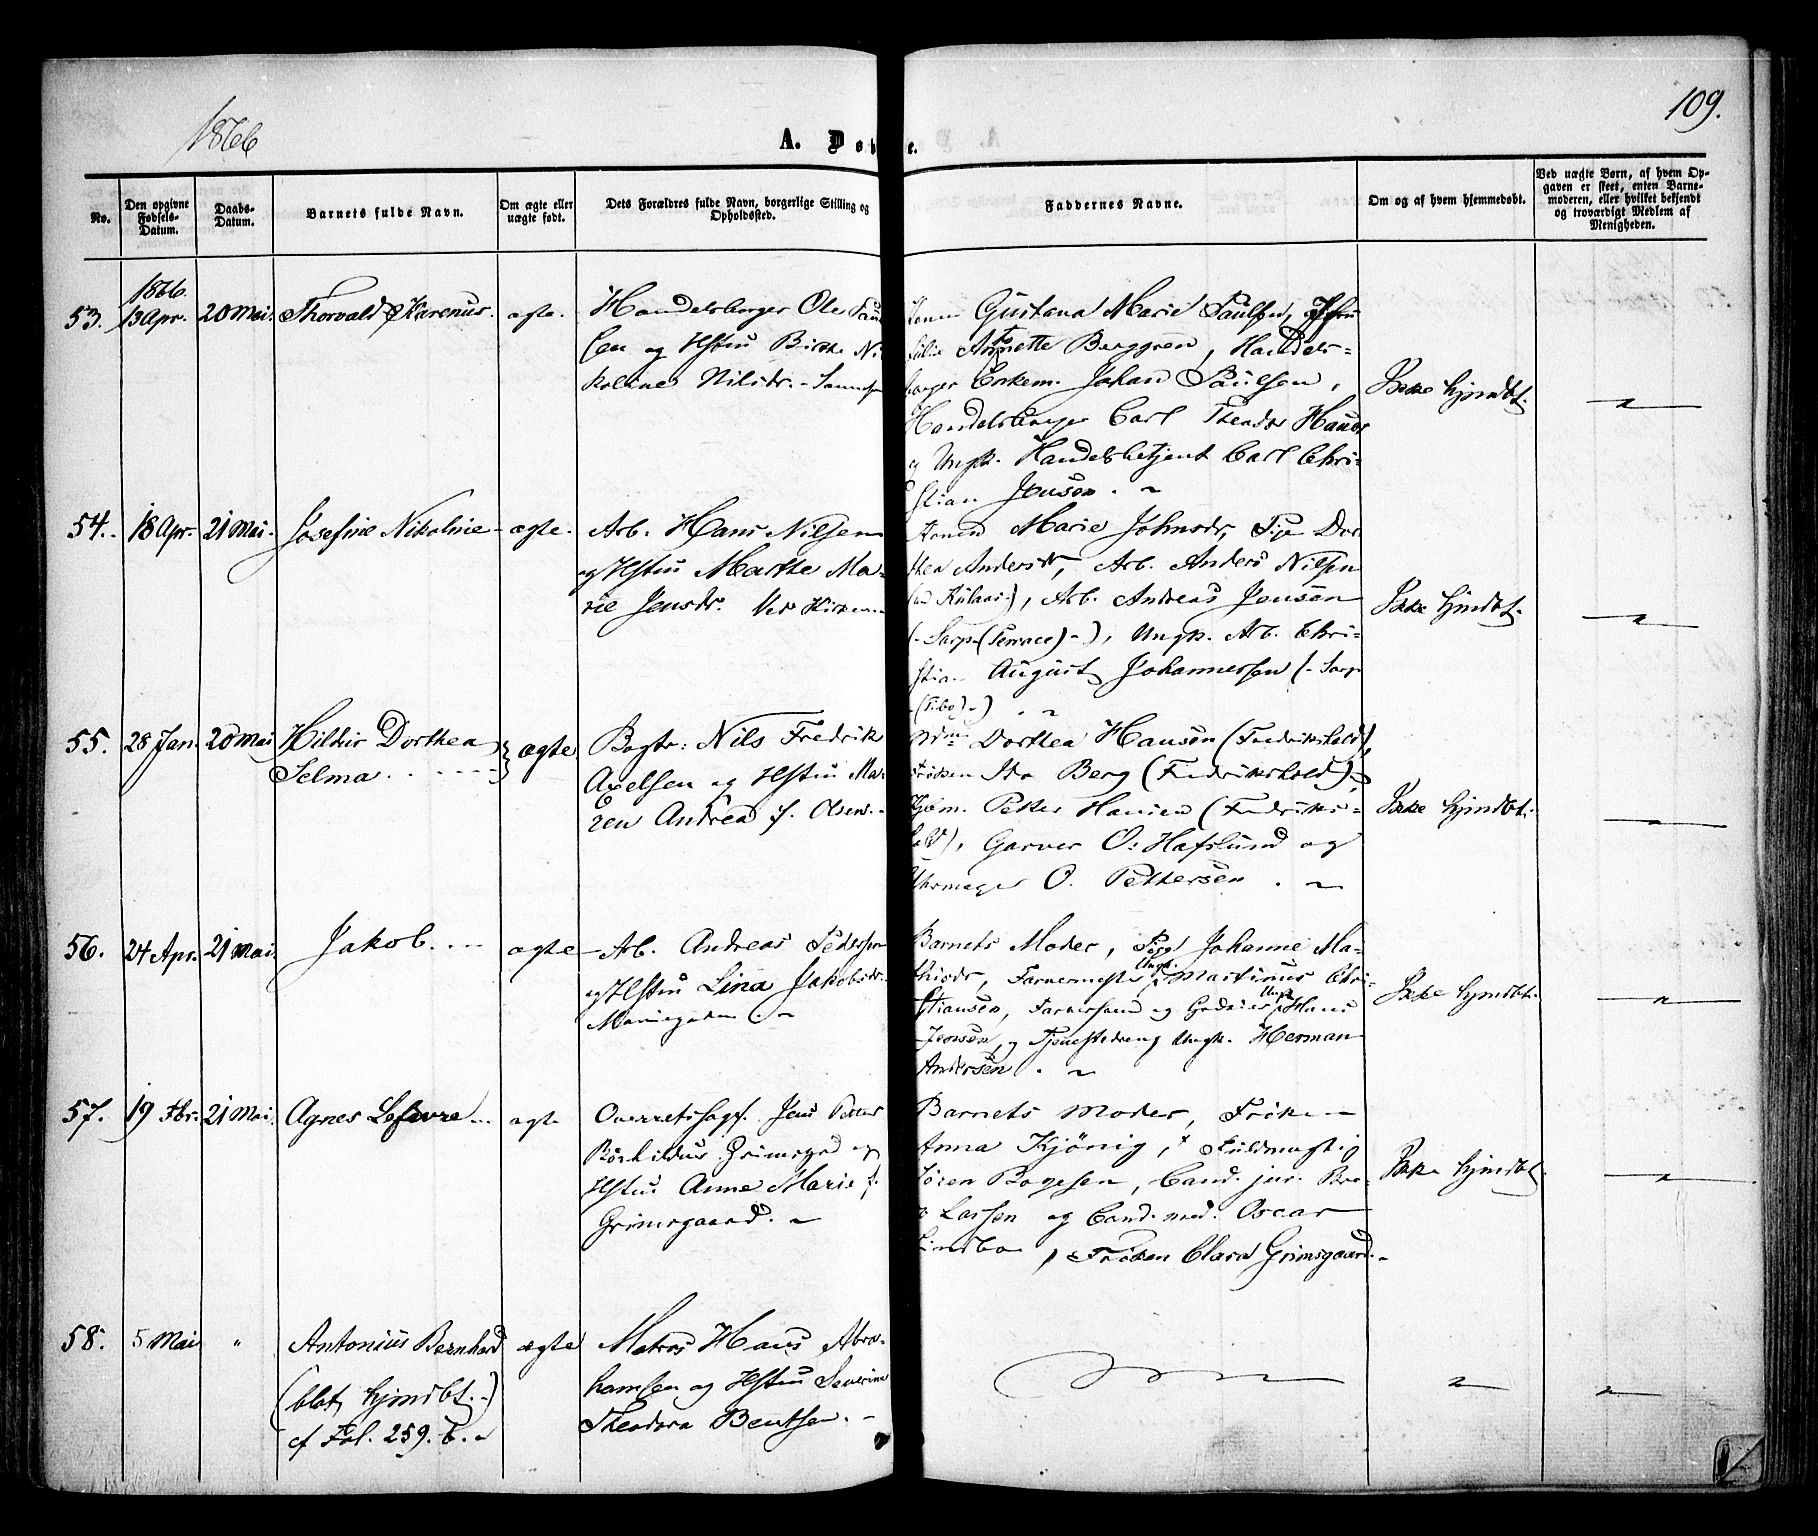 1866
A. Døbte.
109.
No.
Den opgivne Fødsels-Datum.
Daabs-Datum.
Barnets fulde Navn.
Om ægte eller uægte født.
Dets Forældres fulde Navn, borgerlige Stilling og Opholdssted.
Faddernes Navne.
Om og af hvem hjemmedøbt.
Ved uægte Børn, af hvem Opgaven er skeet, enten Barnemoderen, eller hvilket bekjendt og troværdigt Medlem af Menigheden.
53.
1866. 13 Apr.
20 Mai.
Thorvald Karenus.
ægte.
Handelsborger Ole Paul
sen og Hstru Birthe Ni
koline Nilsdr.
Konen Gustava Marie Paulsen,
Annette Berggren, Handels-
borger Enkem. Johan Paulsen,
Handelsborger Carl Theodor
og Ungk. Handelsbetjent Carl Chri-
stian Jensen.
Ikke hjmdbt.
54.
18 Apr.
21 Mai.
Josefine Nikoline
ægte.
Arb. Hans Nilsen
og Hstru Marthe Ma-
rie Jensdr. Ved Kirken
Konen Marie Johnsdr, Pige Dor-
thea Andersdr, Arb. Anders Nilsen
Arb. Andreas Jensen
(- Sarp (Terrace) -), Ungk. Arb. Chri-
stian August Johannessen (- Sarp
Ikke hjmdbt.
55.
28 Jan.
20 Mai
Hildur Dorthea
Selma
ægte
Bogtr: Nils Fredrik
Axelsen og Hstru Ma-
ren Andrea f. Olsen
Dorthea Hansen (Fredrikshald),
Frøken Ida Berg (Fredrikshald),
Petter Hansen (Fredriks-
hald), Garver O. Hafslund og
Uhrmager O. Pettersen.
Ikke hjmdbt.
56.
24 Apr.
21 Mai.
Jakob.
ægte
Arb. Andreas Pedersen
og Hstru Lina Jakobsdr.
Barnets Moder, Pige Johanne Ma-
thisdr, Farvermester Ungk. Martinus Chri-
stiansen, Ungk. Hans
Jensen, og Tjenestedreng Ungk. Herman
Andersen.
Ikke hjmdbt.
57.
19 Fbr.
21 Mai.
Agnes Lefevre
ægte
Overretssagf. Jens Petter
Grimsgaard og
Hstru Anne Marie f.
Grimsgaard.
Barnets Moder, Frøken
Anna Kjønig, Fuldmægtig
Søren Bogesen, Cand. jur. Bre-
Larsen og Cand. med. Oscar
Lindbo, Frøken Clara Grimsgaard.
Ikke hjmdbt.
58.
5 Mai
"
Antonius Bernhard
(blot hjmdbt.)
cf Fol. 259. b.
ægte
Matros Hans Abra-
hamsen og Hstru Severine
Theodora Bentsen.